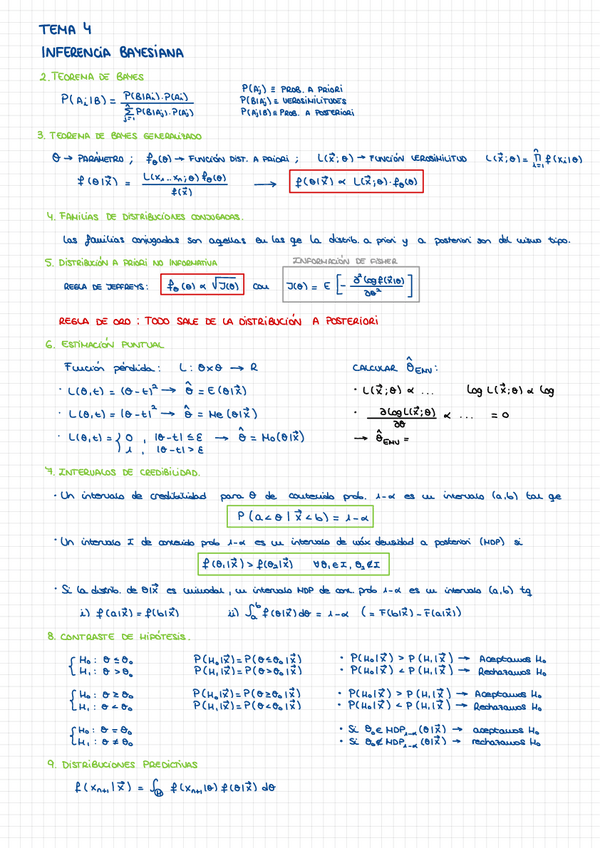 TEMA 4
INFERENCIA BAYESIANA
2. TEOREMA DE BAYES
P(Aᵢ|B) = P(B|Aᵢ).P(Aᵢ) / Σⱼ₌₁ⁿ P(B|Aⱼ).P(Aⱼ)
P(Aⱼ) ≡ PROB. A PRIORI
P(B|Aⱼ) ≡ VEROSIMILITUDES
P(Aⱼ|B) ≡ PROB. A POSTERIORI
3. TEOREMA DE BAYES GENERALIZADO
θ → PARÁMETRO ; f_θ(θ) → FUNCIÓN DIST. A PRIORI ; L(x⃗;θ) → FUNCIÓN VEROSIMILITUD L(x⃗;θ) = ∏ᵢ₌₁ⁿ f(xᵢ|θ)
f(θ|x⃗) = L(x₁...xₙ;θ) f_θ(θ) / f(x⃗) → f(θ|x⃗) ∝ L(x⃗;θ).f_θ(θ)
4. FAMILIAS DE DISTRIBUCIONES CONJUGADAS.
Las familias conjugadas son aqellas en las qe la distrib. a priori y a posteriori son del mismo tipo.
5. DISTRIBUCIÓN A PRIORI NO INFORMATIVA
INFORMACIÓN DE FISHER
REGLA DE JEFFREYS: f_θ(θ) ∝ √J(θ) con J(θ) = E [ - ∂² log f(x⃗|θ) / ∂θ² ]
REGLA DE ORO : TODO SALE DE LA DISTRIBUCIÓN A POSTERIORI
6. ESTIMACIÓN PUNTUAL
Función pérdida: L: Θ×Θ → R
CALCULAR θ̂_EMV :
· L(θ,t) = (θ-t)² → θ̂ = E(θ|x⃗)
· L(x⃗;θ) ∝ ... log L(x⃗;θ) ∝ log
· L(θ,t) = |θ-t|² → θ̂ = Me(θ|x⃗)
· ∂ log L(x⃗;θ) / ∂θ ∝ ... = 0
· L(θ,t) = { 0 , |θ-t| ≤ ε → θ̂ = Mo(θ|x⃗)
1 , |θ-t| > ε
→ θ̂_EMV =
7. INTERVALOS DE CREDIBILIDAD.
· Un intervalo de credibilidad para θ de contenido prob. 1-α es un intervalo (a,b) tal qe
P(a<θ | x⃗<b) = 1-α
· Un intervalo I de contenido prob 1-α es un intervalo de máx densidad a posteriori (MDP) si
f(θ₁|x⃗) > f(θ₂|x⃗) ∀θ₁∈I, θ₂∉I
· Si la distrib. de θ|x⃗ es unimodal, un intervalo MDP de con. prob 1-α es un intervalo (a,b) tq
i) f(a|x⃗) = f(b|x⃗) ii) ∫ₐᵇ f(θ|x⃗)dθ = 1-α ( = F(b|x⃗) - F(a|x⃗))
8. CONTRASTE DE HIPÓTESIS.
{ H₀ : θ ≤ θ₀ P(H₀|x⃗) = P(θ≤θ₀|x⃗) · P(H₀|x⃗) > P(H₁|x⃗) → Aceptamos H₀
H₁ : θ > θ₀ P(H₁|x⃗) = P(θ>θ₀|x⃗) · P(H₀|x⃗) < P(H₁|x⃗) → Rechazamos H₀
{ H₀ : θ ≥ θ₀ P(H₀|x⃗) = P(θ≥θ₀|x⃗) · P(H₀|x⃗) > P(H₁|x⃗) → Aceptamos H₀
H₁ : θ < θ₀ P(H₁|x⃗) = P(θ<θ₀|x⃗) · P(H₀|x⃗) < P(H₁|x⃗) → Rechazamos H₀
{ H₀ : θ = θ₀ · Si θ₀ ∈ MDP₁₋α(θ|x⃗) → aceptamos H₀
H₁ : θ ≠ θ₀ · Si θ₀ ∉ MDP₁₋α(θ|x⃗) → rechazamos H₀
9. DISTRIBUCIONES PREDICTIVAS
f(xₙ₊₁|x⃗) = ∫_Θ f(xₙ₊₁|θ) f(θ|x⃗) dθ